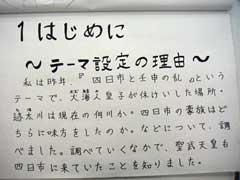 1 はじめに
～テーマ設定の理由～
私は昨年、『四日市と壬申の乱』という
テーマで、大海人皇子が休けいした場所・
迹太川は現在の何川か・四日市の豪族はど
ちらに味方をしたのか。などについて、調
べました。調べていくなかで、聖武天皇も
四日市に来ていたことを知りました。